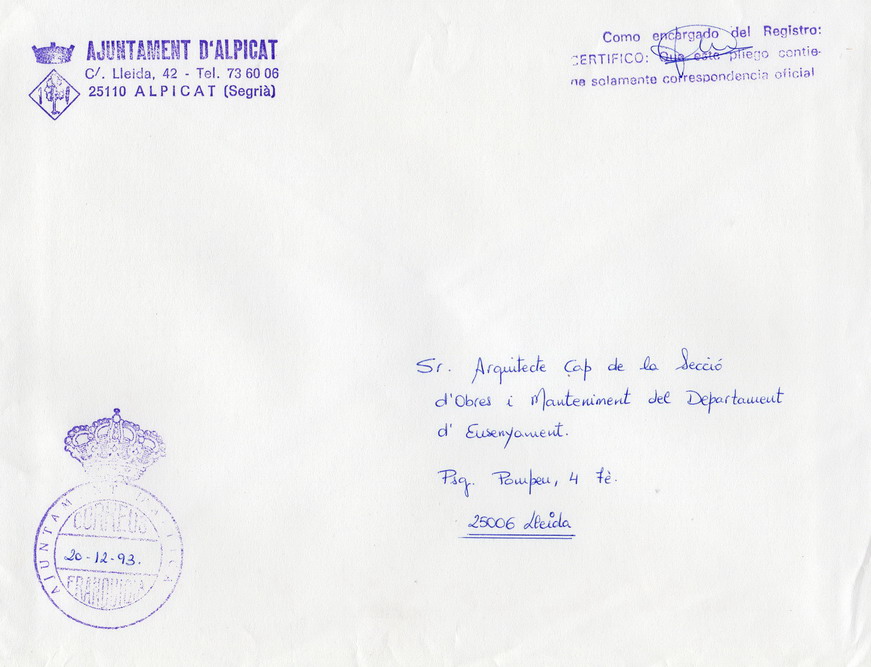 AJUNTAMENT D'ALPICAT
C/. Lleida, 42 - Tel. 73 60 06
25110 ALPICAT (Segrià)
Como encargado del Registro:
CERTIFICO: Que este pliego contie-
ne solamente correspondencia oficial
Sr. Arquitecte Cap de la Secció
d'Obres i Manteniment del Departament
d'Ensenyament.
Psg. Pompeu, 4 7è.
25006 Lleida
AJUNTAMENT D'ALPICAT
CORREUS
20-12-93.
FRANQUICIA